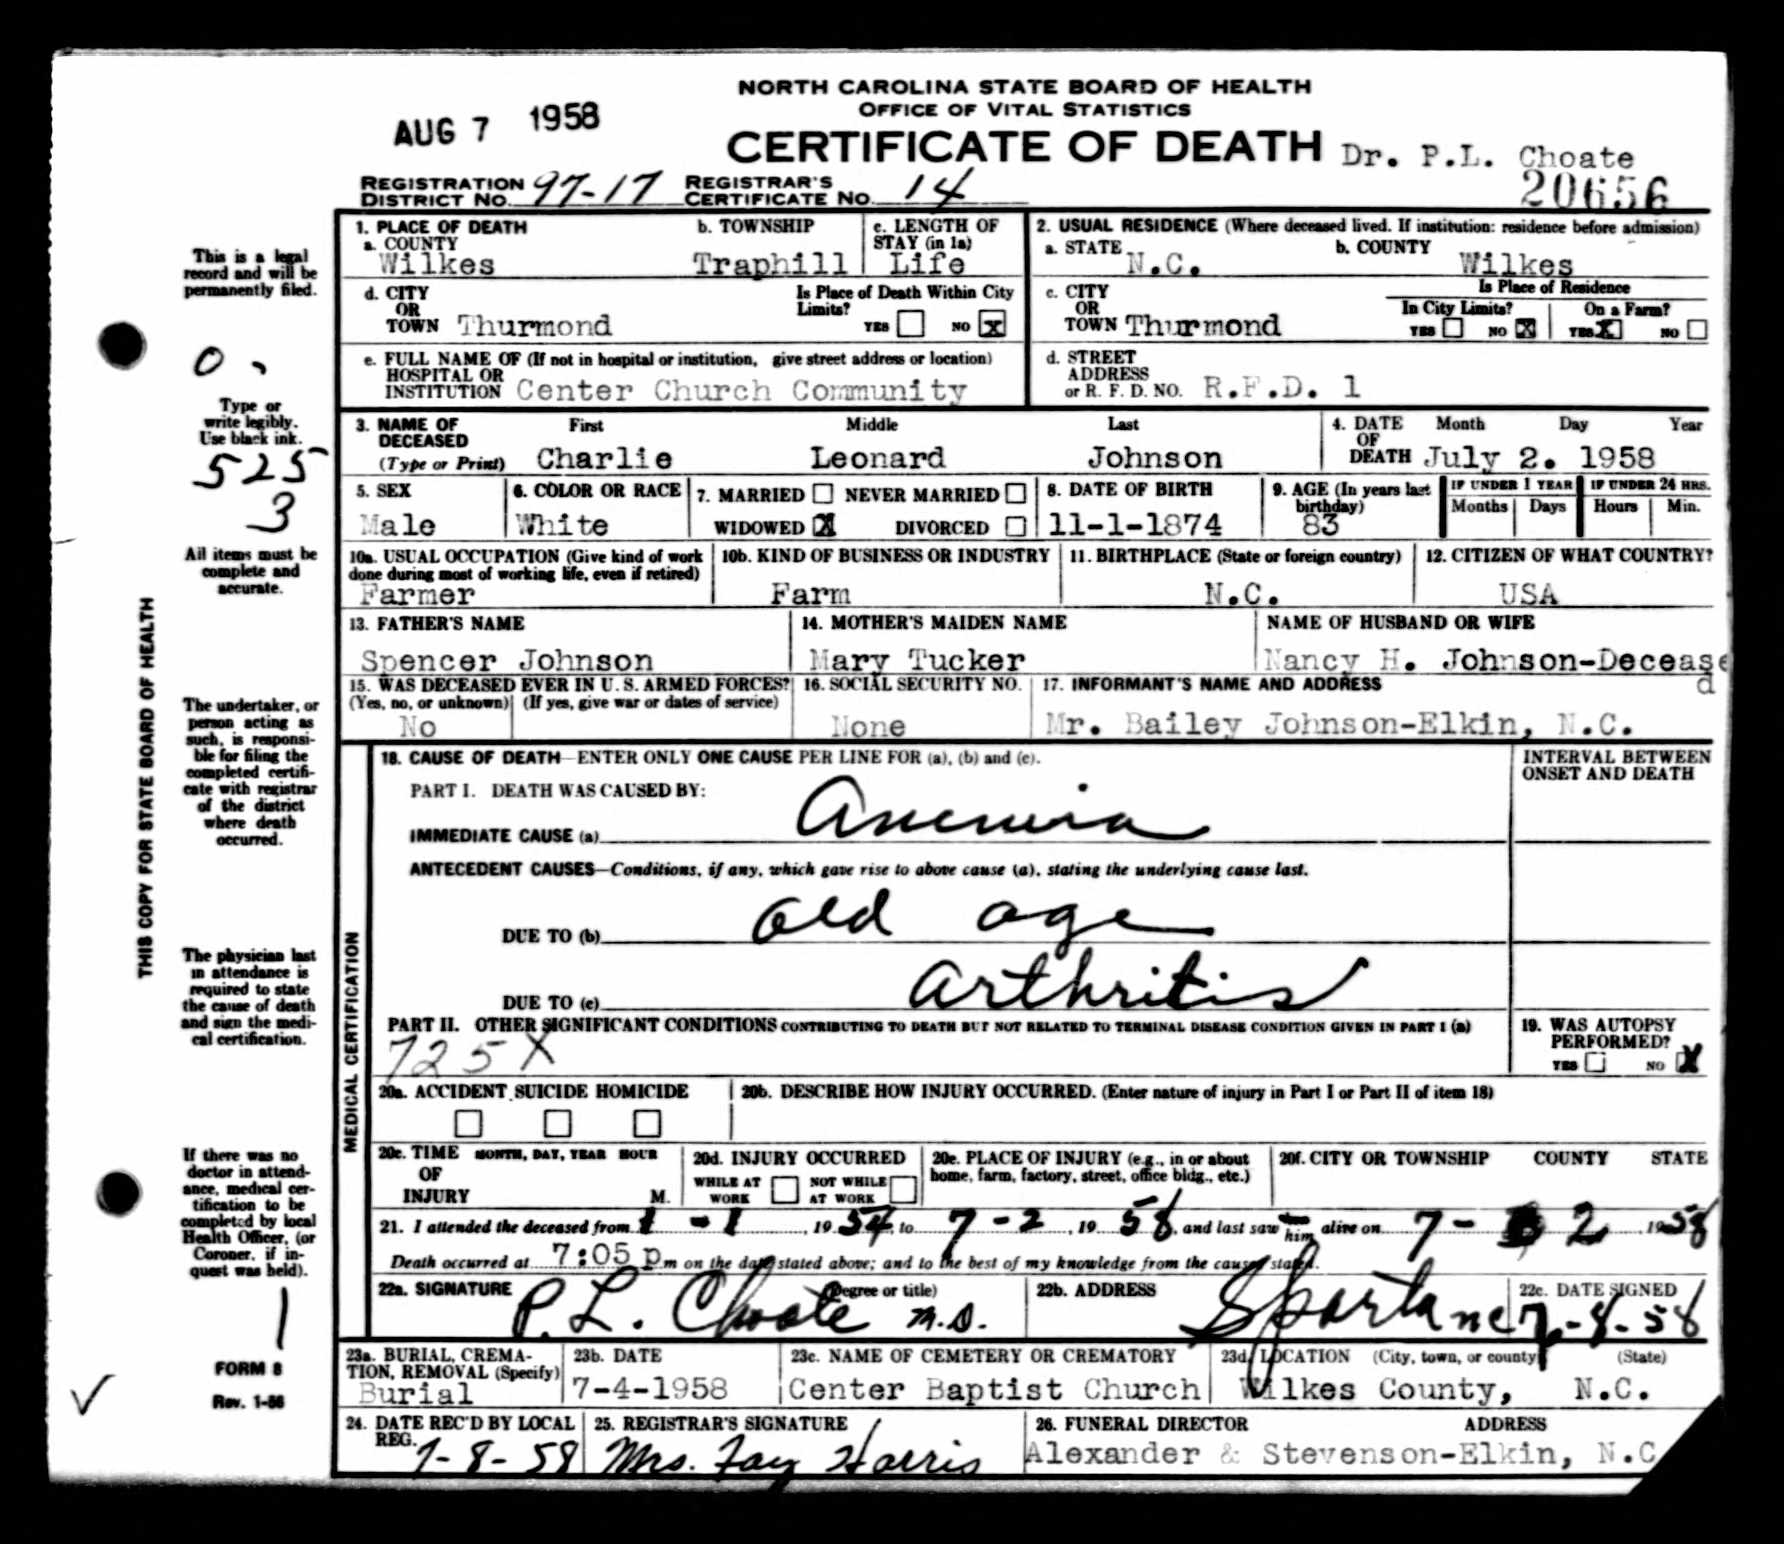 NORTH CAROLINA STATE BOARD OF HEALTH
OFFICE OF VITAL STATISTICS
AUG 7 1958
CERTIFICATE OF DEATH Dr. P.L. Choate
20656
REGISTRATION DISTRICT NO. 97-17 REGISTRAR'S CERTIFICATE NO. 14
1. PLACE OF DEATH
a. COUNTY
Wilkes
b. TOWNSHIP
Traphill
c. LENGTH OF STAY (in 1a)
Life
2. USUAL RESIDENCE (Where deceased lived. If institution: residence before admission)
a. STATE N.C.
b. COUNTY Wilkes
d. CITY OR TOWN Thurmond
Is Place of Death Within City Limits?
YES NO X
c. CITY OR TOWN Thurmond
Is Place of Residence
In City Limits? YES NO X
On a Farm? YES X NO
e. FULL NAME OF (If not in hospital or institution, give street address or location)
HOSPITAL OR
INSTITUTION Center Church Community
d. STREET ADDRESS or R. F. D. NO. R.F.D. 1
3. NAME OF DECEASED (Type or Print)
First Middle Last
Charlie Leonard Johnson
4. DATE OF DEATH
Month Day Year
July 2. 1958
5. SEX
Male
6. COLOR OR RACE
White
7. MARRIED NEVER MARRIED
WIDOWED X DIVORCED
8. DATE OF BIRTH
11-1-1874
9. AGE (In years last birthday)
83
IF UNDER 1 YEAR
Months Days
IF UNDER 24 HRS.
Hours Min.
10a. USUAL OCCUPATION (Give kind of work done during most of working life, even if retired)
Farmer
10b. KIND OF BUSINESS OR INDUSTRY
Farm
11. BIRTHPLACE (State or foreign country)
N.C.
12. CITIZEN OF WHAT COUNTRY?
USA
13. FATHER'S NAME
Spencer Johnson
14. MOTHER'S MAIDEN NAME
Mary Tucker
NAME OF HUSBAND OR WIFE
Nancy H. Johnson-Decease
d
15. WAS DECEASED EVER IN U. S. ARMED FORCES?
(Yes, no, or unknown) (If yes, give war or dates of service)
No
16. SOCIAL SECURITY NO.
None
17. INFORMANT'S NAME AND ADDRESS
Mr. Bailey Johnson-Elkin, N.C.
MEDICAL CERTIFICATION
18. CAUSE OF DEATH—ENTER ONLY ONE CAUSE PER LINE FOR (a), (b) and (c).
INTERVAL BETWEEN ONSET AND DEATH
PART I. DEATH WAS CAUSED BY:
IMMEDIATE CAUSE (a) Anemia
ANTECEDENT CAUSES—Conditions, if any, which gave rise to above cause (a), stating the underlying cause last.
DUE TO (b) old age
DUE TO (c) arthritis
PART II. OTHER SIGNIFICANT CONDITIONS CONTRIBUTING TO DEATH BUT NOT RELATED TO TERMINAL DISEASE CONDITION GIVEN IN PART I (a)
725X
19. WAS AUTOPSY PERFORMED?
YES NO X
20a. ACCIDENT SUICIDE HOMICIDE
20b. DESCRIBE HOW INJURY OCCURRED. (Enter nature of injury in Part I or Part II of item 18)
20c. TIME OF INJURY MONTH, DAY, YEAR HOUR M.
20d. INJURY OCCURRED
WHILE AT WORK NOT WHILE AT WORK
20e. PLACE OF INJURY (e.g., in or about home, farm, factory, street, office bldg., etc.)
20f. CITY OR TOWNSHIP COUNTY STATE
21. I attended the deceased from 1-1, 1954, to 7-2, 1958, and last saw him alive on 7-2 1958
Death occurred at 7:05 p m on the date stated above; and to the best of my knowledge from the cause stated.
22a. SIGNATURE (Degree or title)
P. L. Choate M.D.
22b. ADDRESS
Sparta NC
22c. DATE SIGNED
7-8-58
23a. BURIAL, CREMATION, REMOVAL (Specify)
Burial
23b. DATE
7-4-1958
23c. NAME OF CEMETERY OR CREMATORY
Center Baptist Church
23d. LOCATION (City, town, or county) (State)
Wilkes County, N.C.
24. DATE REC'D BY LOCAL REG.
7-8-58
25. REGISTRAR'S SIGNATURE
Mrs. Fay Harris
26. FUNERAL DIRECTOR ADDRESS
Alexander & Stevenson-Elkin, N.C
THIS COPY FOR STATE BOARD OF HEALTH
This is a legal
record and will be
permanently filed.
0
Type or
write legibly.
Use black ink.
525
3
All items must be
complete and
accurate.
The undertaker, or
person acting as
such, is responsi-
ble for filing the
completed certifi-
cate with registrar
of the district
where death
occurred.
The physician last
in attendance is
required to state
the cause of death
and sign the medi-
cal certification.
If there was no
doctor in attend-
ance, medical cer-
tification to be
completed by local
Health Officer, (or
Coroner, if in-
quest was held).
1
FORM 8
Rev. 1-56